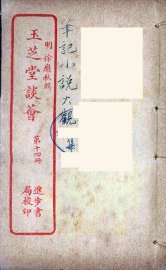 筆記小說大觀
集
明 徐應秋輯
玉芝堂談薈
第十四冊
進步書
局校印